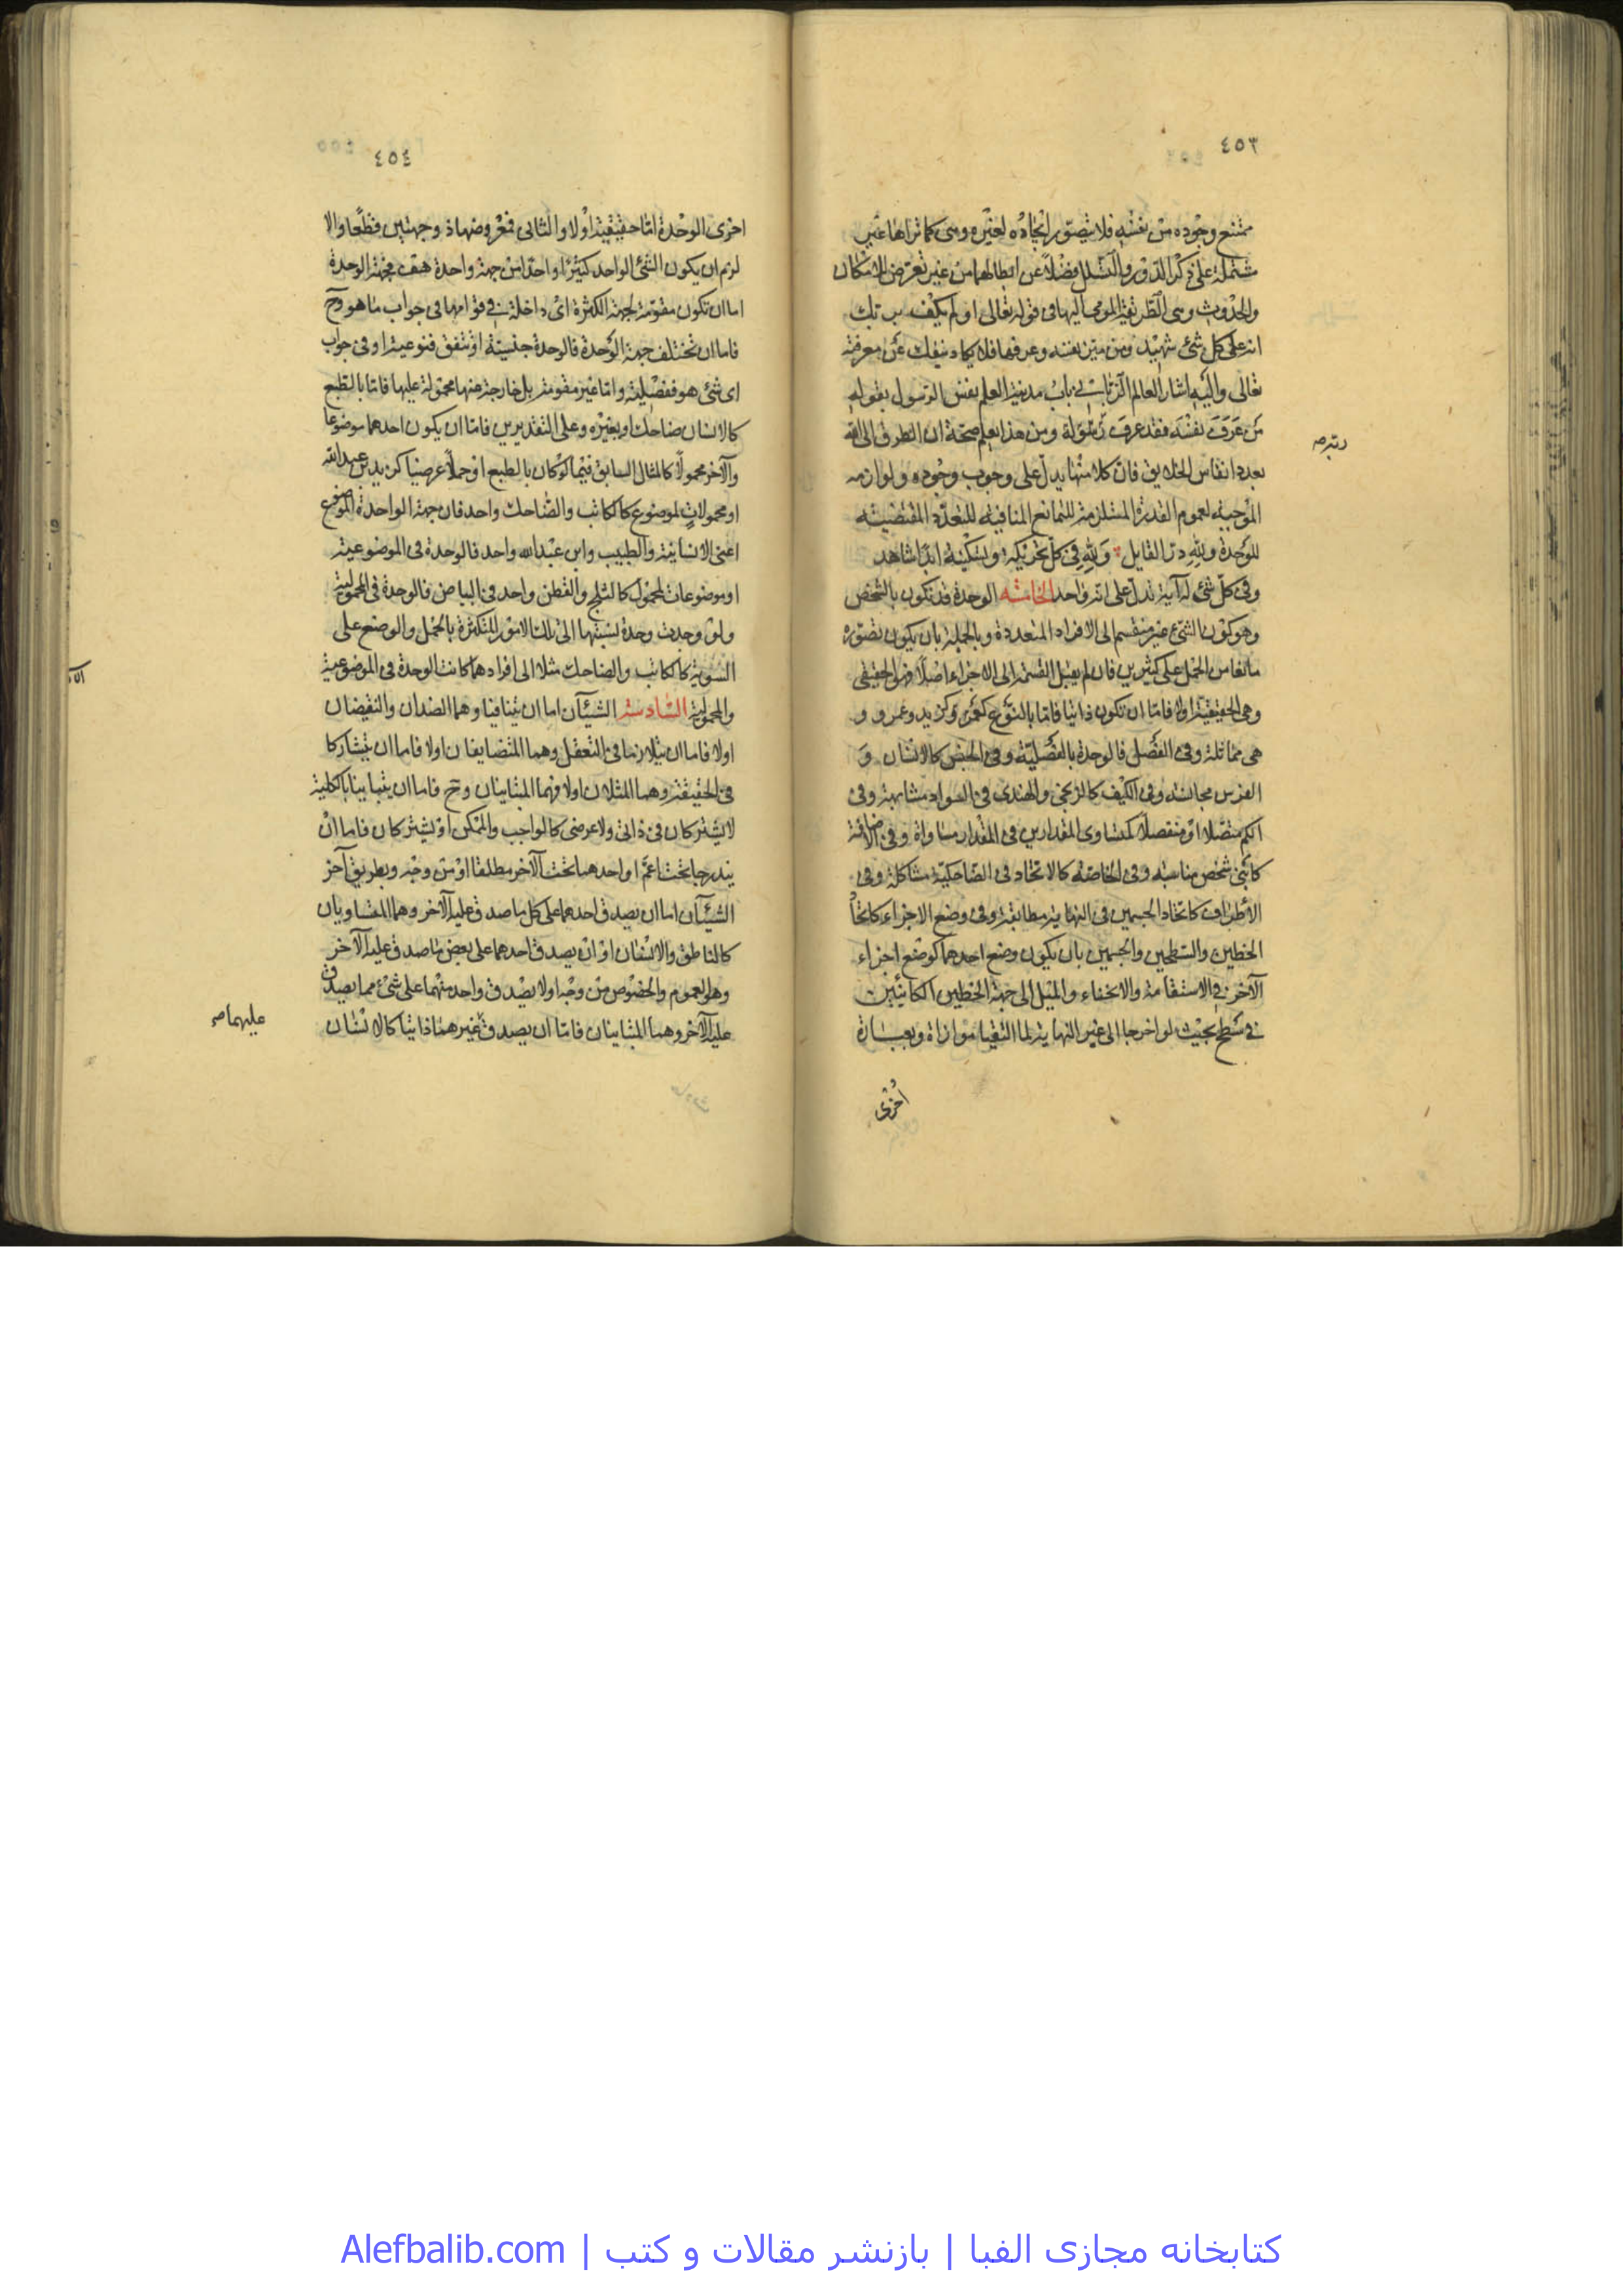 ٤٥٣
ممتنع وجوده من نفسه فلا يتصور ايجاده لغيره وهى كما تراها غير
مشتملة على ذكر الدور والتسلسل فضلا عن ابطالهما من غير تعرض للامكان
والحدوث وهى الطريقة المومى اليها فى قوله تعالى اولم يكف بربك
انه على كل شئ شهيد ومن تيقن نفسه وعرفها فلا يكاد ينفك عن معرفته
تعالى واليه اشار العالم الربانى باب مدينة العلم نفس الرسول بقوله
من عرف نفسه فقد عرف ومن هذا يعلم صحة ان الطرق الى الله
ربه صح
بعدد انفاس الخلايق فان كلا منها يدل على وجوب وجوده ولوازمه
الموجبة لعموم القدرة المستلزمة للتمانع المنافية للتعدد المقتضية
للوحدة ولله در القايل ولله فى كل تحريكة وتسكينة ابدا شاهد
وفى كل شئ له آية تدل على انه واحد الخامسة الوحدة قد تكون بالشخص
وهو كون الشئ غير منقسم الى الافراد المتعددة وبالجملة بان يكون تصوره
مانعا من الحمل على كثيرين فان لم يقبل القسمة الى الاجزاء اصلا فهو الحقيقى
وهى الحقيقية اولا فاما ان تكون ذاتيا فاما بالنوع وكزيد وعمرو و
هى مماثلة وفى الفصل فالوحدة بالفصلية وفى الجنس كالانسان و
الفرس مجانسة وفى الكيف كالزنجى والهندى فى السواد مشابهة وفى
الكم متصلا او منفصلا كمتساوى المقدارين فى المقدار مساواة وفى الاضافة
كابنى شخص مناسبة وفى الخاصة كالاتحاد فى الضاحكية مشاكلة وفى
الأطراف كاتحاد الجسمين فى النهاية مطابقة وفى وضع الاجزاء كاتحاد
الخطين والسطحين والجسمين بان يكون وضع احدهما كوضع اجزاء
الآخر فى الاستقامة والانحناء والميل الى جهة الخطين الكائنين
فى سطح بحيث لو اخرجا الى غير النهاية لما التقيا موازاة وبعبارة
اخرى
٤٥٤
اخرى الوحدة اما حقيقية اولا والثانى فمعروضها ذو جهتين قطعا والا
لزم ان يكون الشئ الواحد كثيرا واحدا من جهة واحدة هف فجهة الوحدة
اما ان تكون مقومة لجهة الكثرة اى داخلة فى قوامها فى جواب ما هو وح
فاما ان تختلف جهة الوحدة فالوحدة جنسية او تتفق فنوعية او فى جواب
اى شئ هو ففصلية واما غير مقومة بل خارجة عنها محمولة عليها فاما بالطبع
كالانسان ضاحك او بغيره وعلى التقديرين فاما ان يكون احدهما موضوعا
والآخر محمولا كالمثال السابق فيما لو كان بالطبع او حملا عرضيا كزيد بن عبد الله
او محمولات لموضوع كالكاتب والضاحك واحد فان جهة الواحدة الموضوع
اعنى الانسانية والطبيب وابن عبد الله واحد فالوحدة فى الموضوعية
او موضوعات لمحمول كالثلج والقطن واحد فى البياض فالوحدة فى المحمولية
ولو وجدت وحدة نسبتها الى تلك الامور المتكثرة بالحمل والوضع على
السوية كالكاتب والضاحك مثلا الى افرادهما كانت الوحدة فى الموضوعية
والمحمولية السادسة الشيئان اما ان يتنافيا وهما الضدان والنقيضان
اولا فاما ان يتلازما فى التعقل وهما المتضايفان اولا فاما ان يتشاركا
فى الحقيقة وهما المثلان اولا فهما المتباينان وح فاما ان يتباينا بالكلية
لا يشتركان فى ذاتى ولا عرضى كالواجب والممكن او يشتركان فاما ان
يندرجا تحت اعم او احدهما تحت الآخر مطلقا او من وجه وبطريق آخر
الشيئان اما ان يصدق احدهما على كل ما صدق عليه الآخر وهما المتساويان
كالناطق والانسان او ان يصدق احدهما على بعض ما صدق عليه الآخر
وهو العموم والخصوص من وجه اولا يصدق واحد منهما على شئ مما يصدق
عليه الآخر وهما المتباينان فاما ان يصدق غيرهما ذاتيا كالانسان
عليهما صح
كتابخانه مجازى الفبا | بازنشر مقالات و كتب | Alefbalib.com